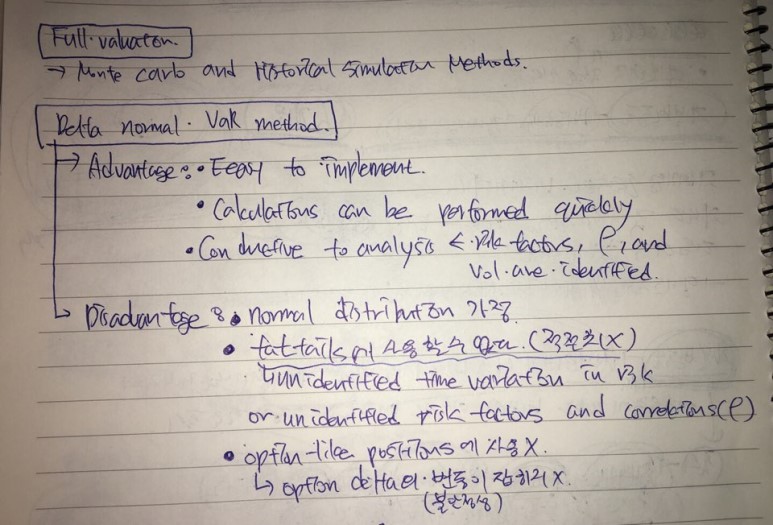 Full·valuaton.
→ Monte carlo and Historical simulation Methods.
Delta normal· VaR method.
→ Advantage : • Eeasy to implement.
• Calculations can be performed quickly
• Conducive to analysis ← ·risk factors, ρ, and
vol·are·identified.
→ Disadvantage : • normal distribution 가정
• fat tails에 사용할 수 없다. (적절히X)
↳ unidentified time variation in risk
or unidentified risk factors and correlations(ρ)
• option-like positions에 사용X.
↳ option delta의·변동이 잡히지X.
(불안정성)